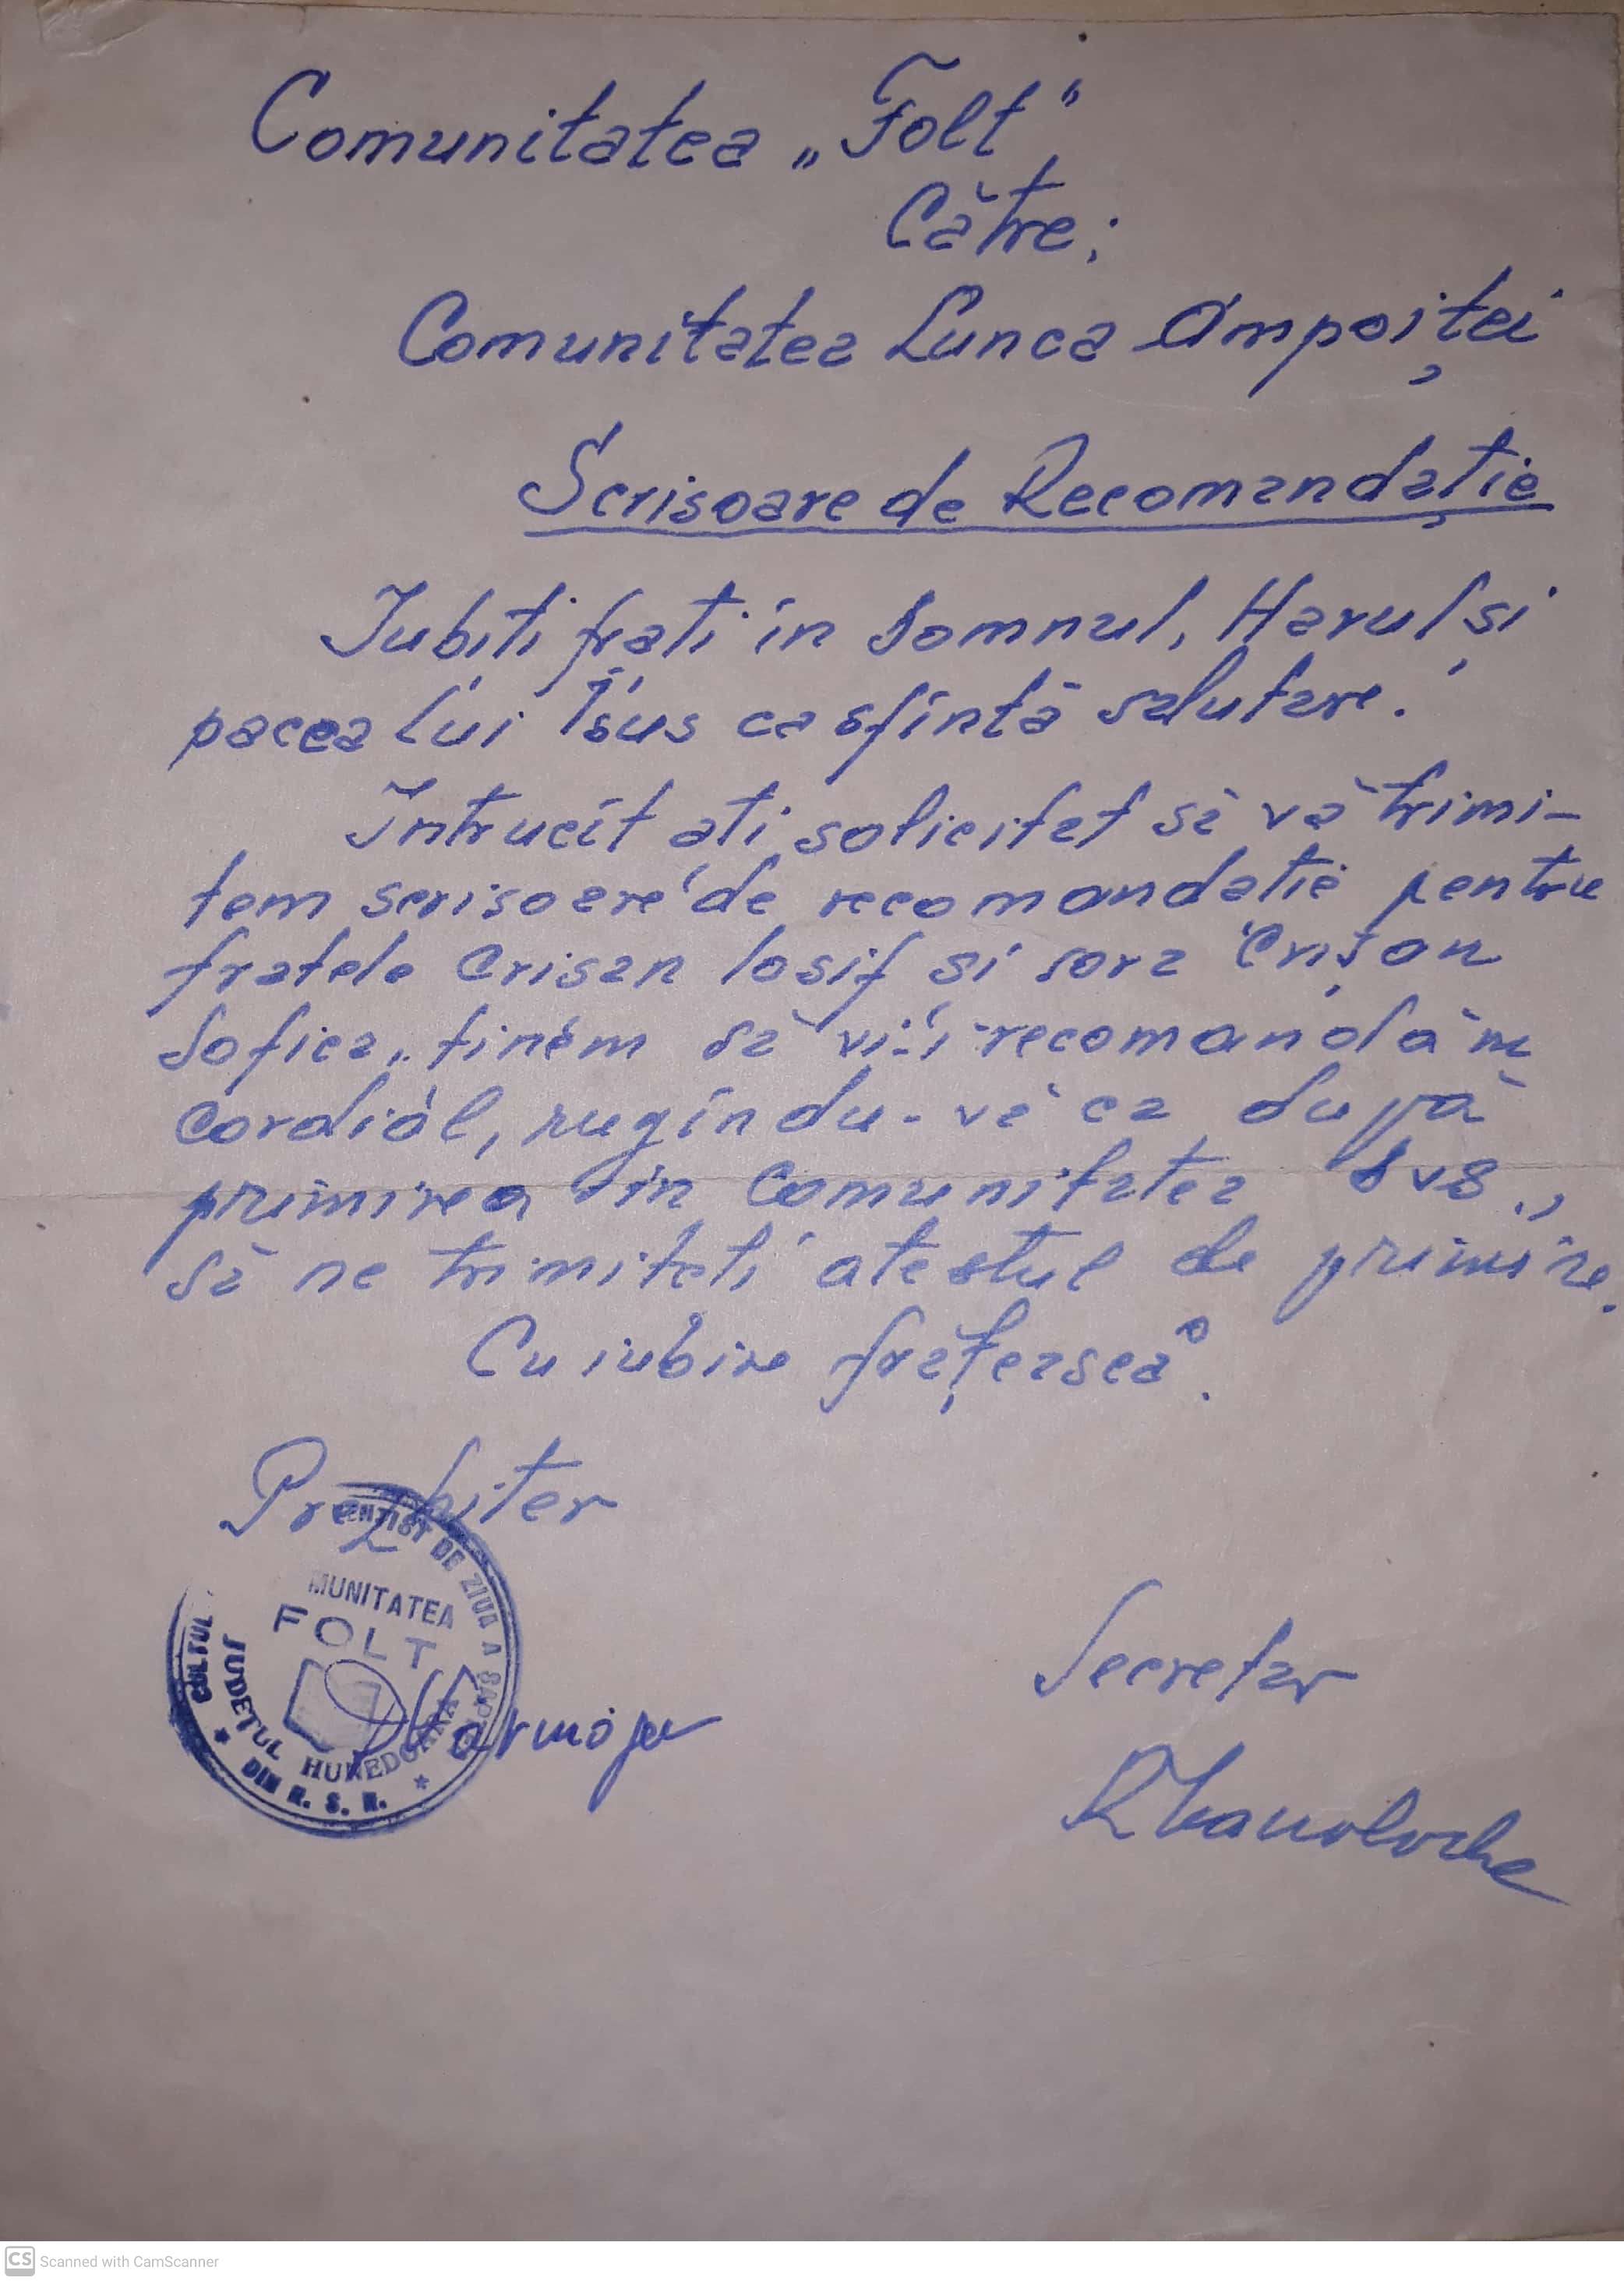 Comunitatea „Folt"
Către:
Comunitatea Lunca Ampoiței
Scrisoare de Recomandație
Iubiti frați in Domnul, Harul și
pacea lui Isus ca sfîntă salutare.
Intrucît ati solicitat să vă trimi-
tem scrisoare de recomandatie pentru
fratele Crisan Iosif si sora Crișan
Sofica, tinem să vi-i recomandăm
cordial, rugîndu-vă ca după
primirea in Comunitatea Dvs.,
să ne trimiteti atestul de primire.
Cu iubire frațească.
Prezbiter
CULTUL DE ZIUA A
MUNITATEA
FOLT
JUDETUL HUNEDOARA
DIN R. S. R.
Secretar
CS Scanned with CamScanner